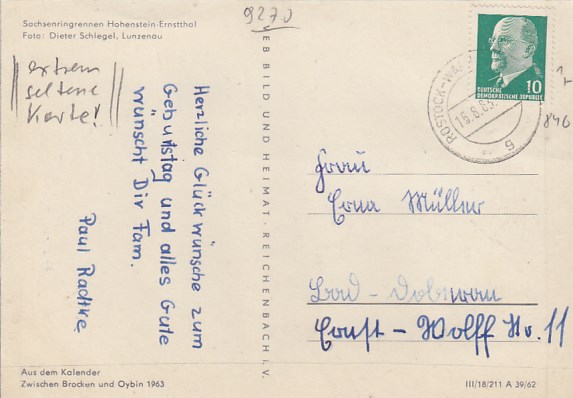 Sachsenringrennen Hohenstein-Ernstthal
Foto: Dieter Schlegel, Lunzenau
9270
extrem
seltene
Karte!
Herzliche Glückwünsche zum
Geburtstag und alles Gute
wünscht Dir Fam.
Paul Radtke
VEB BILD UND HEIMAT · REICHENBACH I. V.
10
DEUTSCHE
DEMOKRATISCHE REPUBLIK
ROSTOCK-WA
g
846
Frau
Erna Müller
Bad-Doberan
Ernst-Wolff Nr. 11
Aus dem Kalender
Zwischen Brocken und Oybin 1963
III/18/211 A 39/62